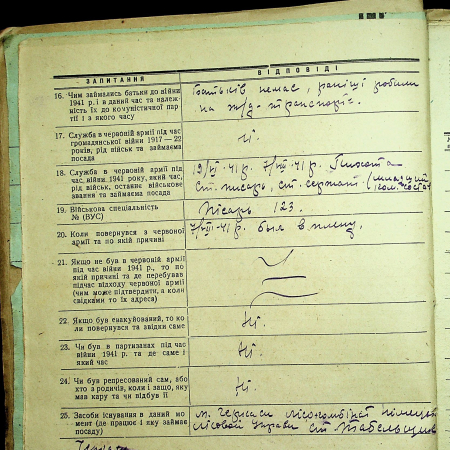 ЗАПИТАННЯ
ВІДПОВІДІ
16. Чим займались батьки до війни
1941 р. і в даний час та належ-
ність їх до комуністичної пар-
тії і з якого часу
Батьків немає, раніш робили
на ж/д-транспорті.
17. Служба в червоній армії під час
громадянської війни 1917—22
років, рід військ та займаєма
посада
Ні.
18. Служба в червоній армії під
час війни 1941 року, який час,
рід військ, останнє військове
звання та займаєма посада
41 р. 41 р. Пихота
ст. писарь, ст. сержант
19. Військова спеціальність
№ (ВУС)
Писарь 123.
20. Коли повернувся з червоної
армії та по якій причині
41 р. був в плену.
21. Якщо не був в червоній армії
під час війни 1941 р., то по
якій причині та де перебував
підчас відходу червоної армії
(чим може підтвердити, а коли
свідками то їх адреса)
22. Якщо був евакуйований, то ко-
ли повернувся та звідки саме
Ні.
23. Чи був в партизанах під час
війни 1941 р. та де саме і
який час
Ні.
24. Чи був репресований сам, або
хто з родичів, коли і защо, яку
мав кару та чи відбув її
Ні.
25. Засоби існування в даний мо-
мент (де працює і яку займає
посаду)
м. Черкаси лісокомбінат
лісової управи ст.